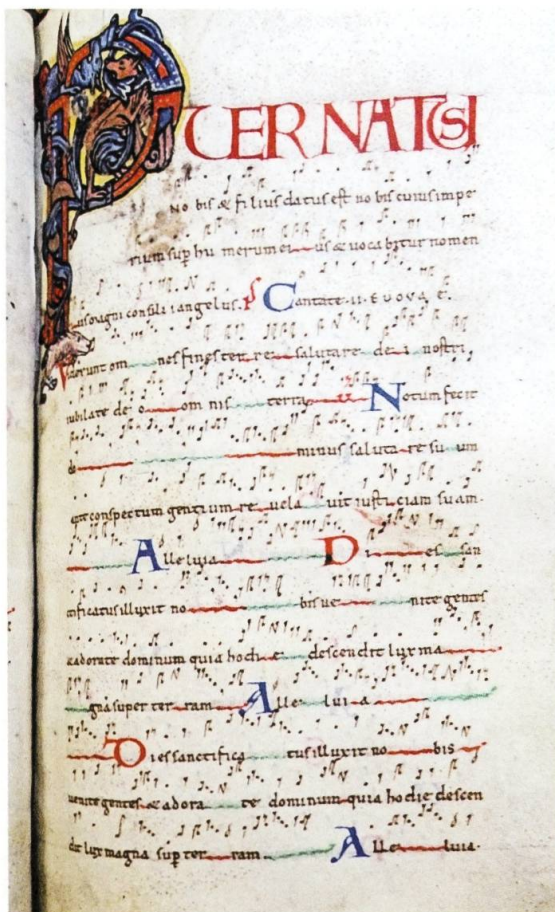 PUER NATUS
no bis & filius datus est no bis cuius impe
rium sup hu merum ei us & uoca bitur nomen
eius magni consilii angelus. ps Cantate .ii. E U O V A E.
Viderunt om nes fines ter re salutare de i nostri
iubilate de o om nis terra V Notum fecit
do minus saluta re su um
ante conspectum gentium re uela uit iusticiam suam.
Alleluia Di es san
ctificatus illuxit no bis ue nite gentes
& adorate dominum quia hodi e descendit lux ma
gna super ter ram Alle lui a
Dies sanctifica tus illuxit no bis
uenite gentes & adora te dominum quia hodie descen
dit lux magna sup ter ram. Alle luia.